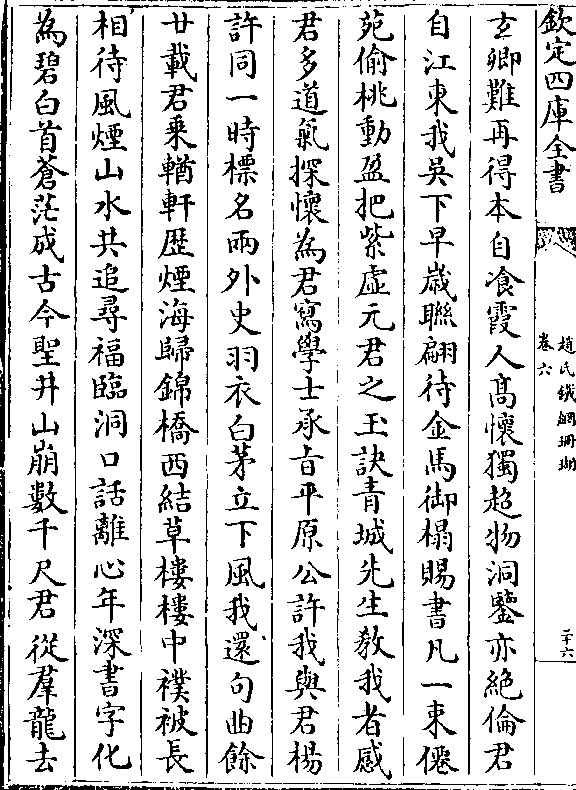 欽定四庫全書
趙氏鐵網珊瑚
卷六
二十六
玄卿難再得本自飡霞人高懷獨超物洞鑒亦絶倫君
自江東我吳下早歳聯翩待金馬御榻賜書凡一束僊
苑偷桃動盈把紫虛元君之玉訣青城先生敎我者感
君多道氣探懷為君寫學士承㫖平原公許我與君楊
許同一時標名兩外史羽衣白茅立下風我還句曲餘
廿載君乗輶軒歴煙海歸錦橋西結草樓樓中襆被長
相待風煙山水共追尋福臨洞口話離心年深書字化
為碧白首蒼茫成古今聖井山崩數千尺君從羣龍去